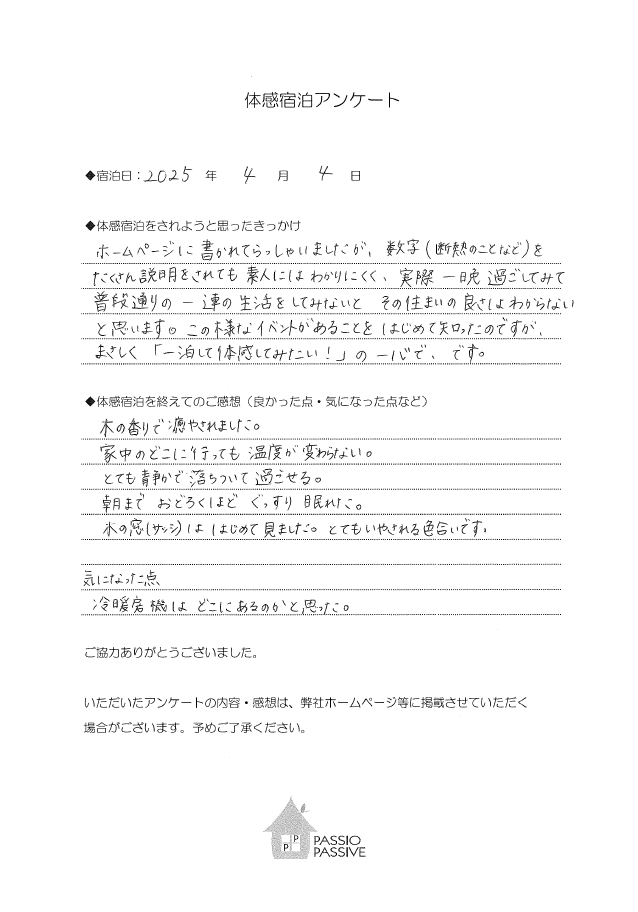 体感宿泊アンケート
◆宿泊日：2025 年 4 月 4 日
◆体感宿泊をされようと思ったきっかけ
ホームページに書かれてらっしゃいましたが、数字(断熱のことなど)を
たくさん説明をされても素人にはわかりにくく、実際一晩過ごしてみて
普段通りの一連の生活をしてみないとその住まいの良さはわからない
と思います。この様なイベントがあることをはじめて知ったのですが、
まさしく「一泊して体感してみたい！」の一心で、です。
◆体感宿泊を終えてのご感想（良かった点・気になった点など）
木の香りで癒やされました。
家中のどこに行っても温度が変わらない。
とても静かで落ちついて過ごせる。
朝までおどろくほどぐっすり眠れた。
木の窓(サッシ)ははじめて見ました。とてもいやされる色合いです。
気になった点
冷暖房機はどこにあるのかと思った。
ご協力ありがとうございました。
いただいたアンケートの内容・感想は、弊社ホームページ等に掲載させていただく
場合がございます。予めご了承ください。
P
P
PASSIO
PASSIVE